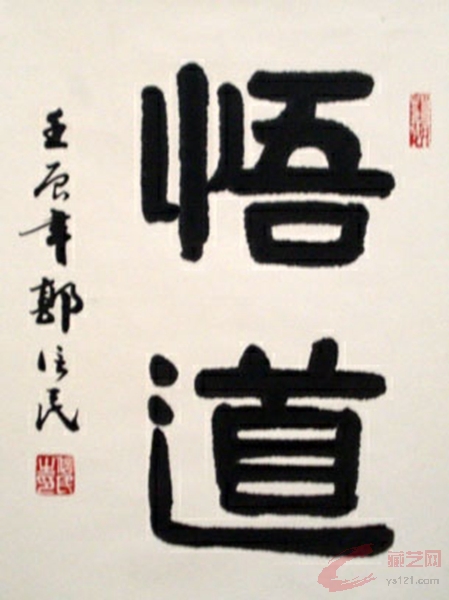 悟道
壬辰年郭信民
藏艺网
ys121.com